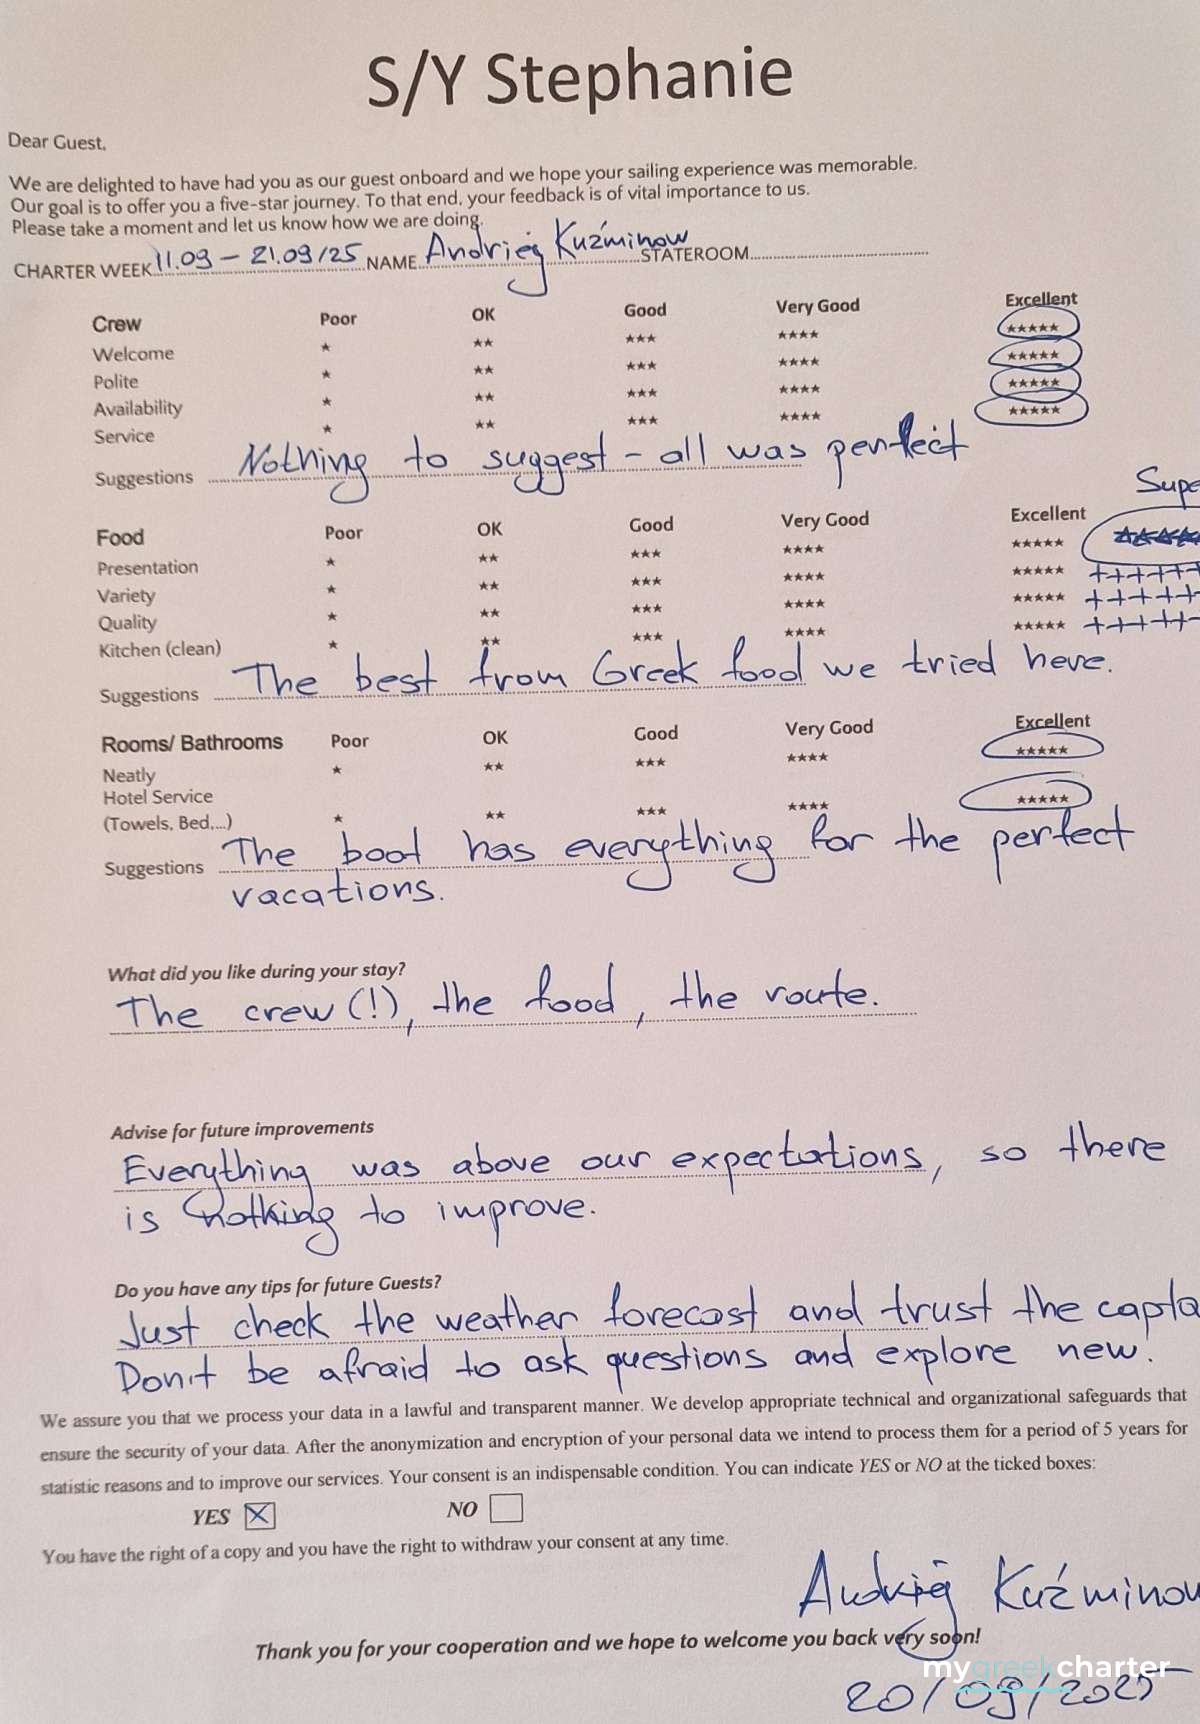 S/Y Stephanie
Dear Guest,
We are delighted to have had you as our guest onboard and we hope your sailing experience was memorable.
Our goal is to offer you a five-star journey. To that end, your feedback is of vital importance to us.
Please take a moment and let us know how we are doing.
CHARTER WEEK 11.09 – 21.09/25 NAME Andriej Kuźminow STATEROOM
Crew Poor OK Good Very Good Excellent
Welcome ★ ★★ ★★★ ★★★★ ★★★★★
Polite ★ ★★ ★★★ ★★★★ ★★★★★
Availability ★ ★★ ★★★ ★★★★ ★★★★★
Service ★ ★★ ★★★ ★★★★ ★★★★★
Suggestions Nothing to suggest – all was perfect
Supe
Food Poor OK Good Very Good Excellent
Presentation ★ ★★ ★★★ ★★★★ ★★★★★ ★★★★★
Variety ★ ★★ ★★★ ★★★★ ★★★★★ ++++++
Quality ★ ★★ ★★★ ★★★★ ★★★★★ +++++
Kitchen (clean) ★ ★★ ★★★ ★★★★ ★★★★★ +++++
Suggestions The best from Greek food we tried here.
Rooms/ Bathrooms Poor OK Good Very Good Excellent
Neatly ★ ★★ ★★★ ★★★★ ★★★★★
Hotel Service
(Towels, Bed,...) ★ ★★ ★★★ ★★★★ ★★★★★
Suggestions The boat has everything for the perfect
vacations.
What did you like during your stay?
The crew (!), the food, the route.
Advise for future improvements
Everything was above our expectations, so there
is nothing to improve.
Do you have any tips for future Guests?
Just check the weather forecast and trust the capta
Don't be afraid to ask questions and explore new.
We assure you that we process your data in a lawful and transparent manner. We develop appropriate technical and organizational safeguards that
ensure the security of your data. After the anonymization and encryption of your personal data we intend to process them for a period of 5 years for
statistic reasons and to improve our services. Your consent is an indispensable condition. You can indicate YES or NO at the ticked boxes:
YES ☒ NO ☐
You have the right of a copy and you have the right to withdraw your consent at any time.
Andriej Kuźminow
Thank you for your cooperation and we hope to welcome you back very soon!
mygreekcharter
20/09/2025